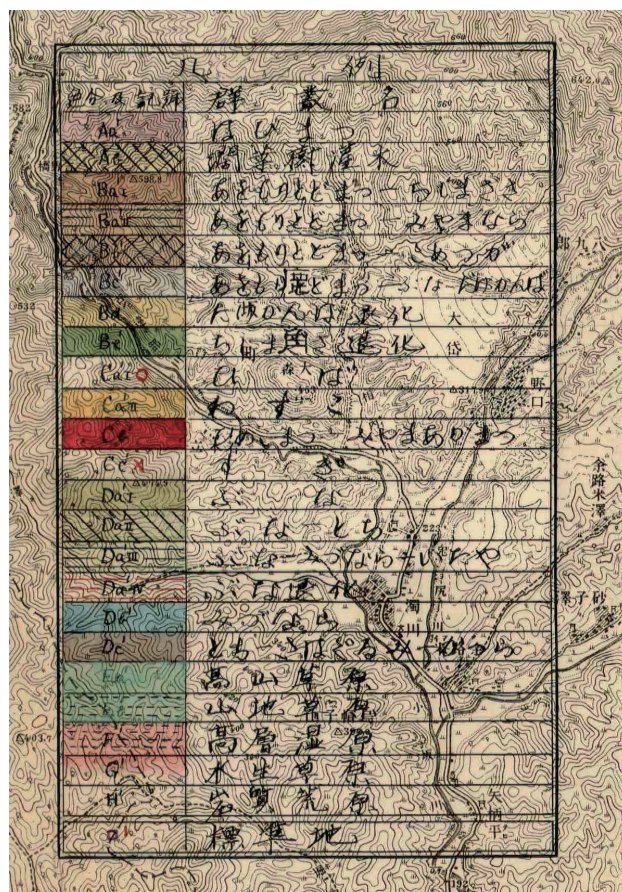 凡例
色分及記號 群叢名
Aa' はひまつ
Ac' 濶葉樹灌木
Ba'I あをもりとどまつ—ちしまざさ
Ba'II あをもりとどまつ—みやまなら
Bb' あをもりとどまつ—こめつが
Bc' あをもりとどまつ—ぶな—だけかんば
Bd' だけかんば退化
Be' ちしまざさ退化
Ca'I ひば
Ca'II ねずこ
Cb' ひめこまつ—みやまあかまつ
Cc' すぎ
Da'I ぶな
Da'II ぶな—とち
Da'III ぶな—みづなら—いたや
Da'IV ぶな退化
Db' みづなら
Dc' とち—さはぐるみ—かつら
Ea' 高山草原
Eb' 山地草原
F' 高層湿原
G' 水生草原
H' 岩質荒原
標準地
八九郎
大岱
大森
野口
余路米澤
砂子澤
濁川
660
600
532
223